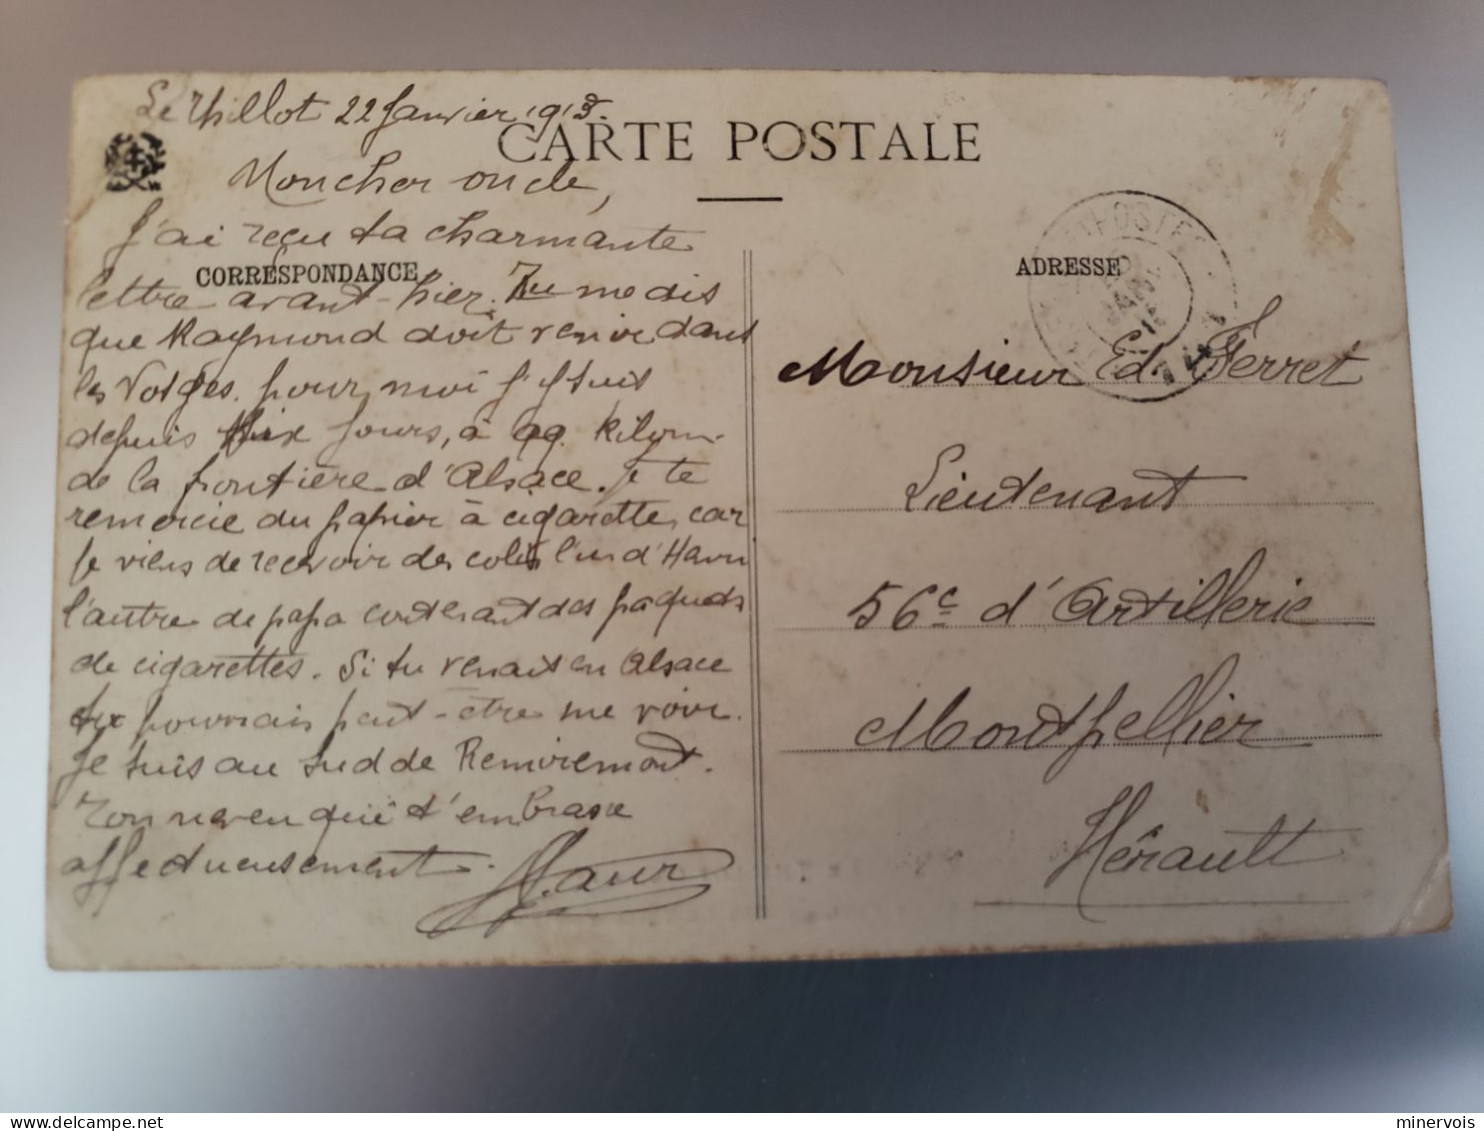 Le Thillot 22 Janvier 1915.
CARTE POSTALE
Mon cher oncle,
J'ai reçu ta charmante
CORRESPONDANCE
lettre avant-hier. Tu me dis
que Raymond doit venir dans
les Vosges. pour moi j'y suis
depuis dix jours, à 99. kilom.
de la frontière d'Alsace. je te
remercie du papier à cigarette, car
je viens de recevoir des colis l'un d'
l'autre de papa contenant des paquets
de cigarettes. Si tu venais en Alsace
tu pourrais peut-être me voir.
Je suis au sud de Remiremont.
Ton neveu qui t'embrasse
affectueusement.
ADRESSE
POSTES
JANV
15
Monsieur Ed. Ferret
Lieutenant
56e d'Artillerie
Montpellier
Hérault
minervois